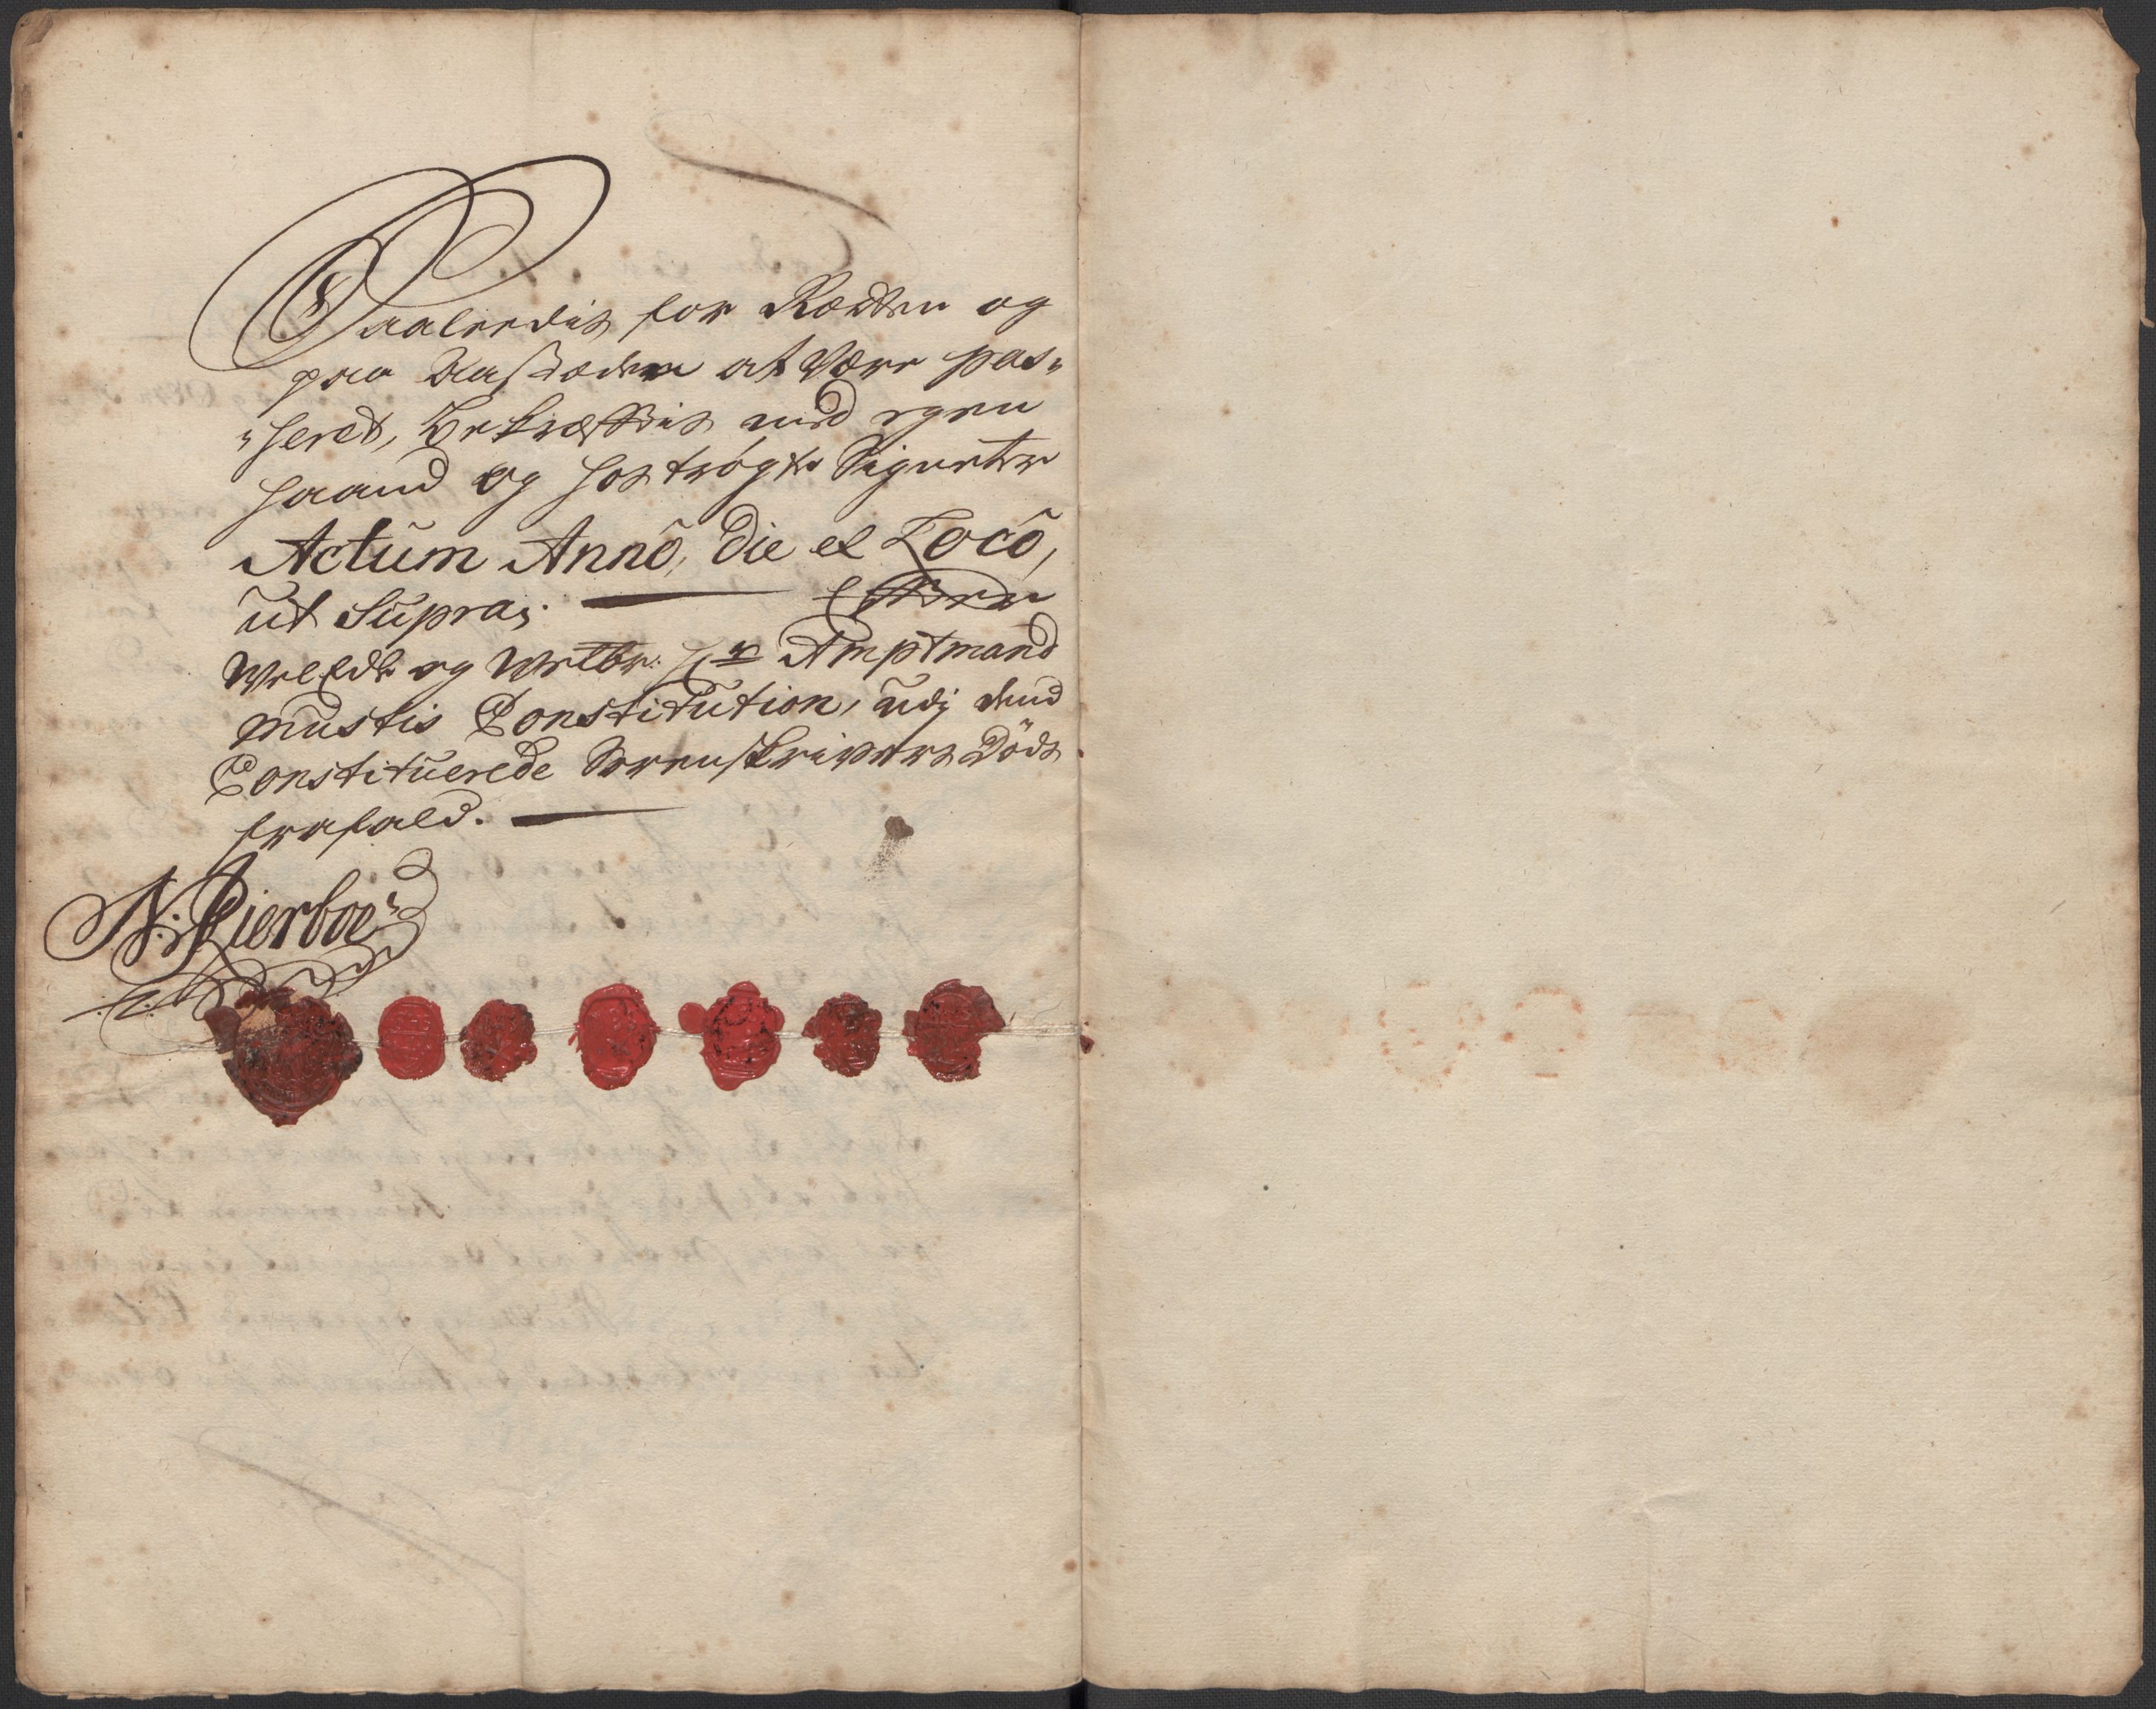 Saaledis for Rætten og
paa Aastæden at være pas„
„seret, Bekræfftis med egen
haand og hostrøgte Signeter
Actum Annô, Die et Locô,
ut Supra;. Effter
Welædle og Welbr: Hr Amptmand
mustis Constitution, udj dend
Constituerede Sorenskrivers Döds
frafald.
N: Bierboe